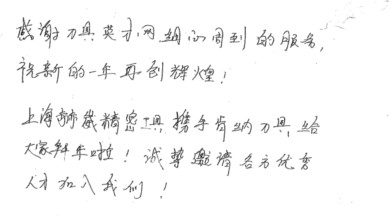 感谢刀具英才网细心周到的服务,
祝新的一年再创辉煌!
上海 精密工具 携手肯纳刀具 给
大家拜年啦! 诚挚邀请各方优秀
人才加入我们!